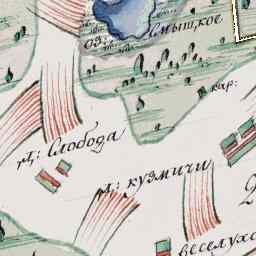 оз: Смыткое
кар:
д: Слобода
д: кузмичи
веселухо